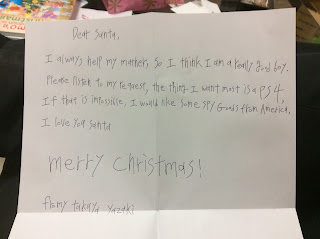 Dear Santa,
I always help my mather, So I think I am a really good boy.
Please listen to my request, the thing I want most is a PS4,
If that is impossible, I would like some Spy Goods from America,
I love you Santa
merry christmas!
from takaya yazaki